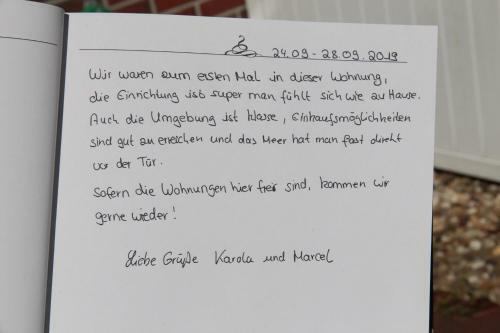 24.09 - 28.09.2019
Wir waren zum ersten Mal in dieser Wohnung,
die Einrichtung ist super man fühlt sich wie zu Hause.
Auch die Umgebung ist klasse, Einkaufsmöglichkeiten
sind gut zu erreichen und das Meer hat man fast direkt
vor der Tür.
Sofern die Wohnungen hier frei sind, kommen wir
gerne wieder!
Liebe Grüße Karola und Marcel